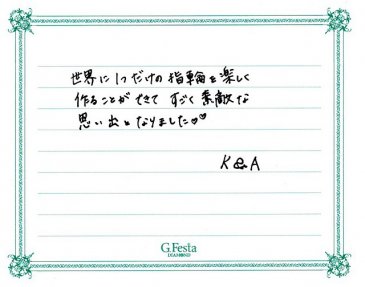 世界に1つだけの指輪を楽しく
作ることができて すごく素敵な
思い出となりました♡♡
K&A
G.Festa
DIAMOND